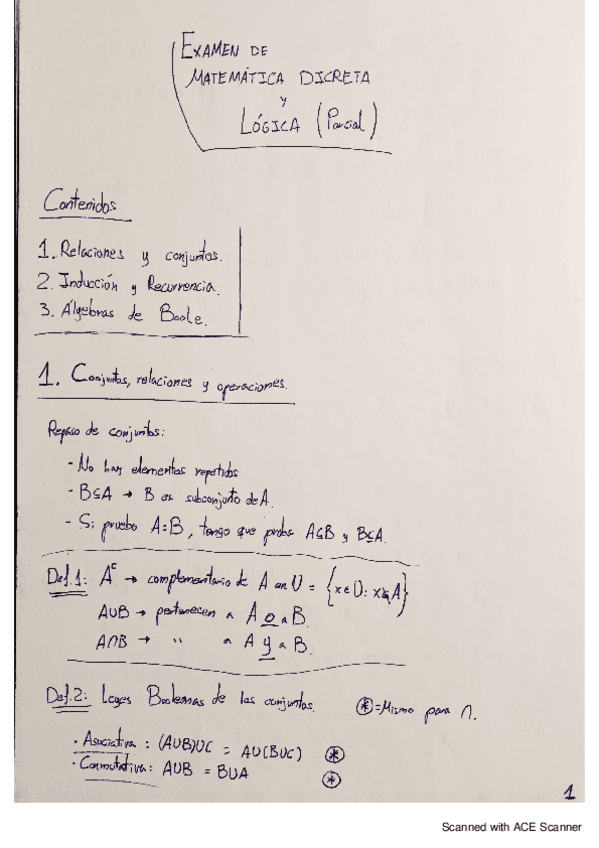 EXAMEN DE
MATEMÁTICA DISCRETA
y
LÓGICA (Parcial)
Contenidos
1. Relaciones y conjuntos.
2. Inducción y Recurrencia.
3. Álgebras de Boole.
1. Conjuntos, relaciones y operaciones.
Repaso de conjuntos:
- No hay elementos repetidos
- B⊆A → B es subconjunto de A.
- Si pruebo A=B, tengo que probar A⊆B y B⊆A.
Def.1: Aᶜ → complementario de A en U = {x∈U: x∉A}
A∪B → pertenecen a A o a B.
A∩B → " a A y a B.
Def.2: Leyes Booleanas de los conjuntos. ⊛=Mismo para ∩.
· Asociativa: (A∪B)∪C = A∪(B∪C) ⊛
· Conmutativa: A∪B = B∪A ⊛
1
Scanned with ACE Scanner